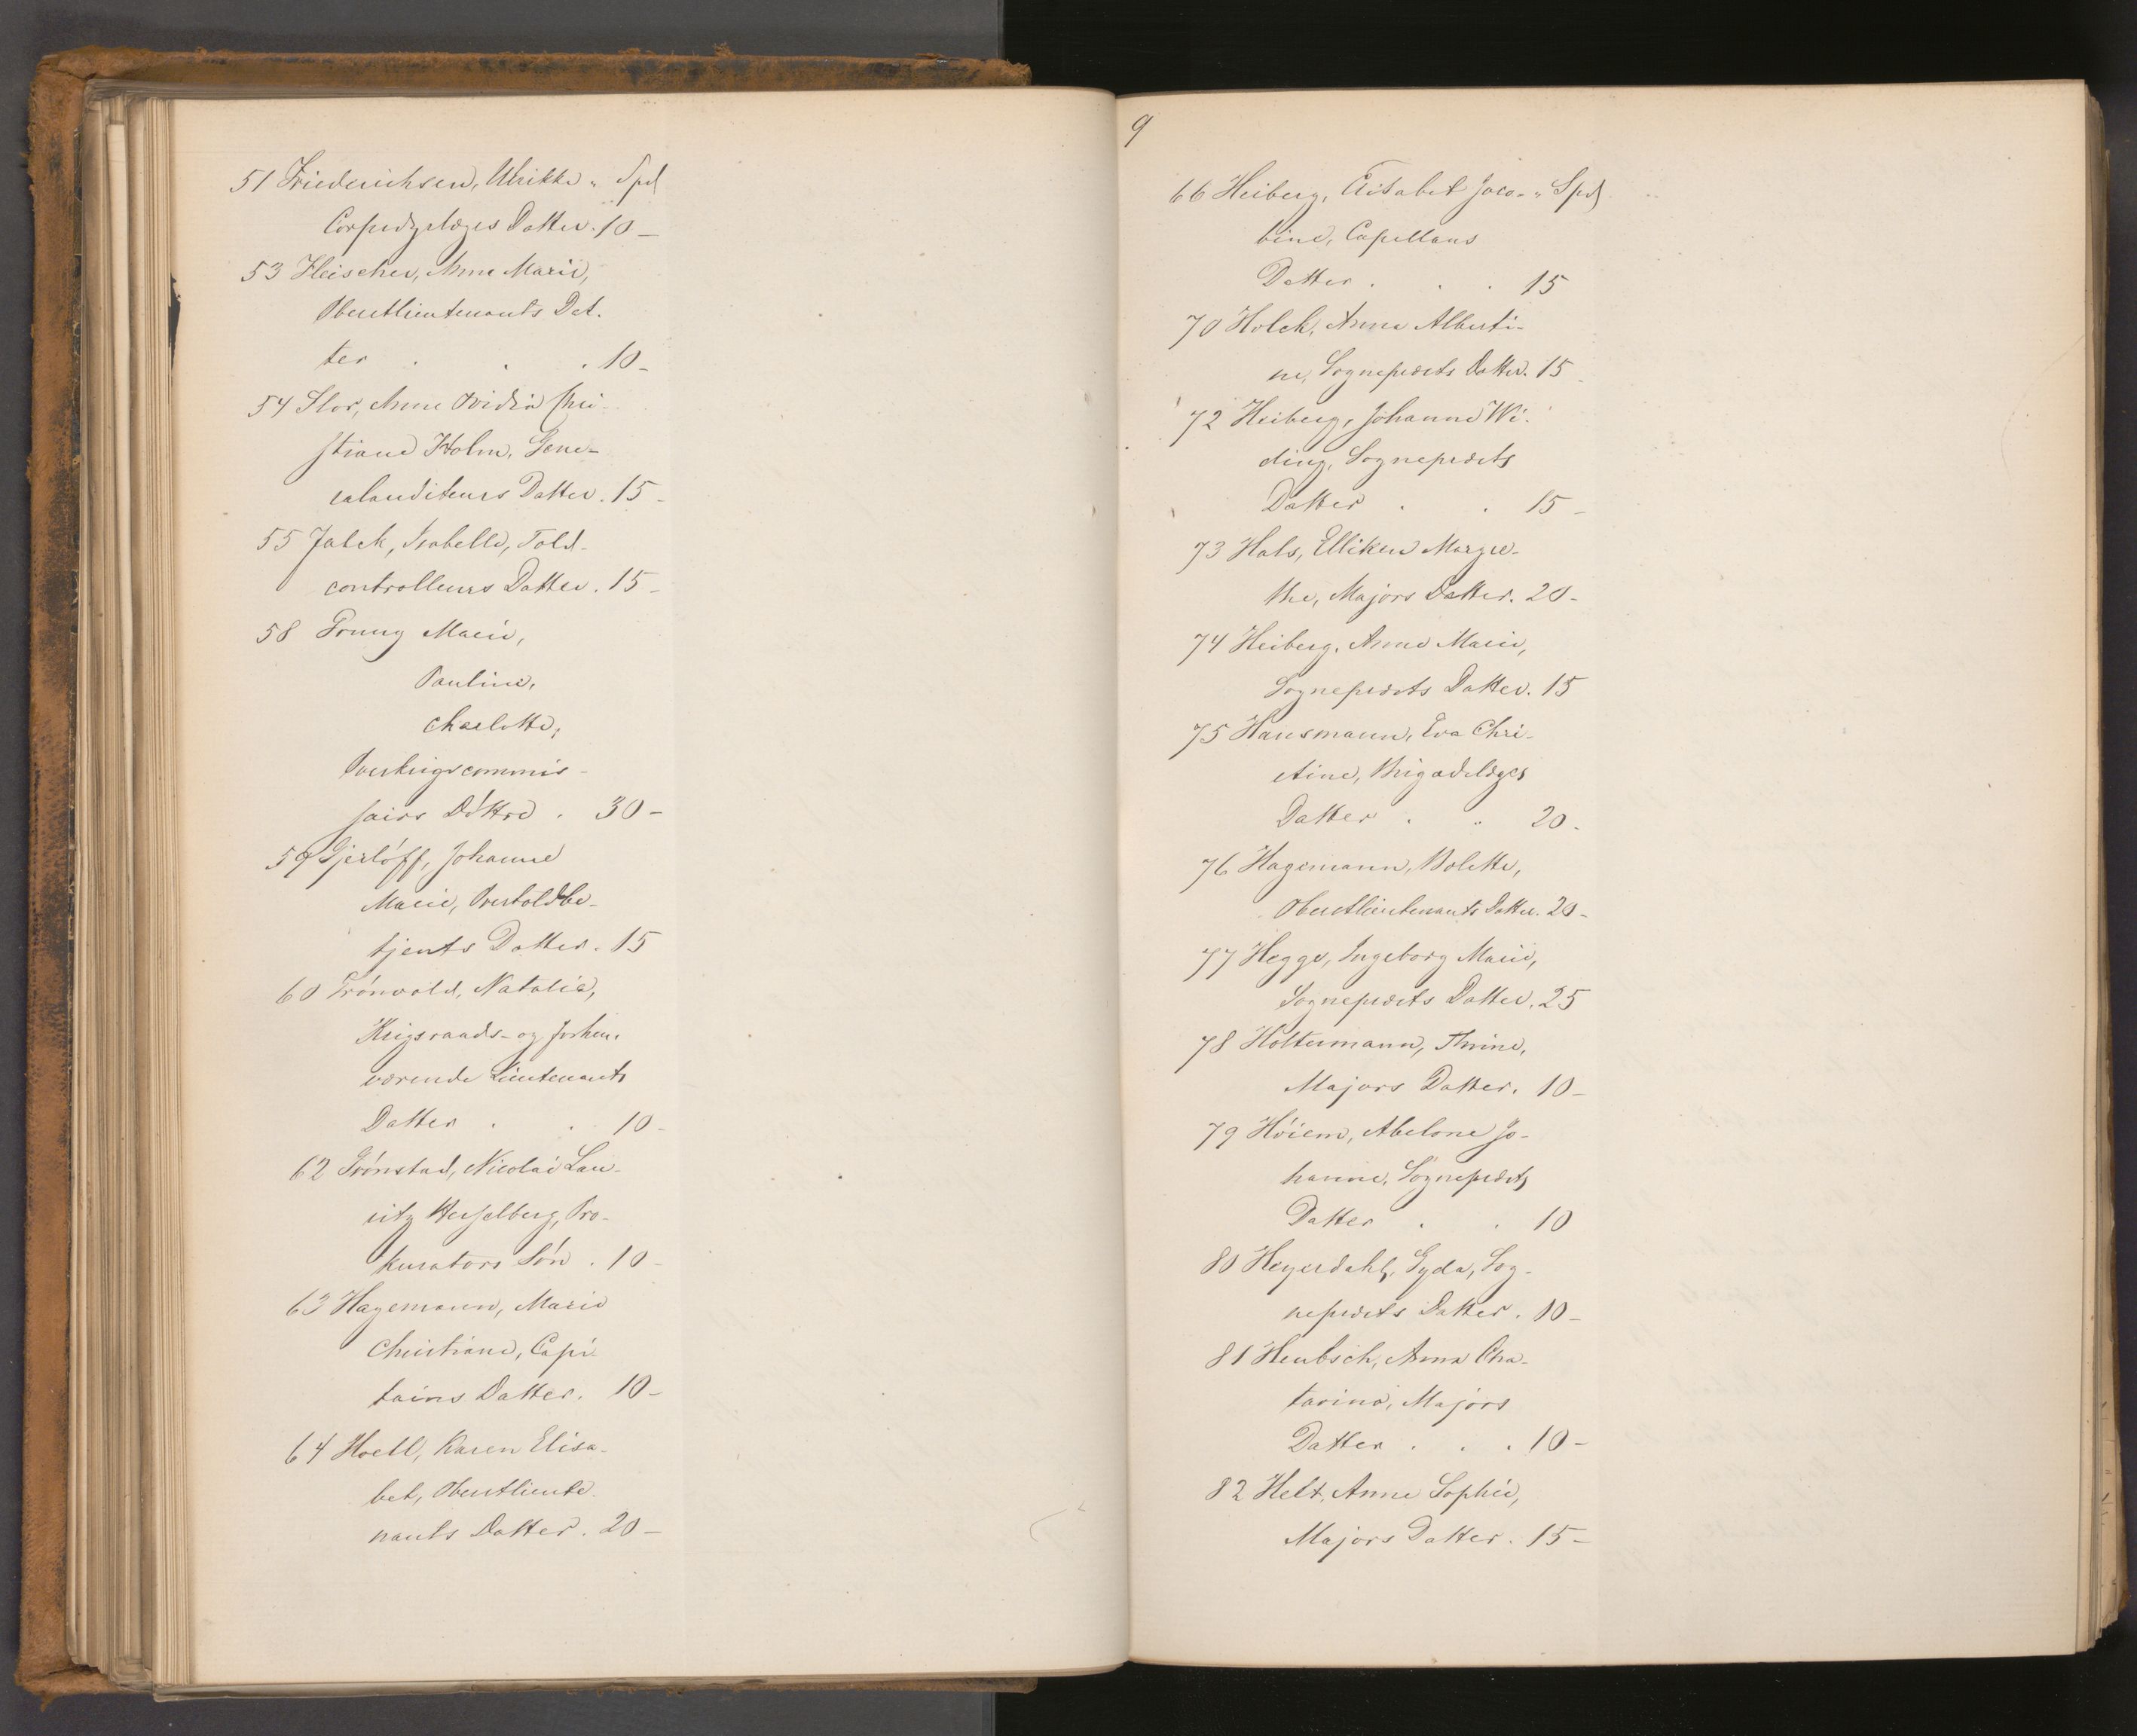 51 Friederichsen, Ulrikke „ Spd
Corpsdyrlæges Datter. 10 –
53 Fleischer, Anne Marie,
Oberstlieutenants Dat-
ter . . . 10 –
54 Flor, Anne Ovidia Chri-
stiane Holm, Gene-
ralauditeurs Datter. 15 –
55 Falck, Isabelle, Told-
controlleurs Datter. 15 –
58 Marie,
Pauline,
Charlotte,
Overkrigscommis-
sairs Döttre . 30 –
59 Gjerlöff, Johanne
Marie, Overtoldbe-
tjents Datter. 15
60 Grönvold, Natalia,
Krigsraads- og forhen-
værende Lieutenants
Datter . . 10 –
62 Grönstad, Nicolai Lau-
ritz Hesselberg, Pro-
kurators Sön . 10 –
63 Hagemann, Marie
Christiane, Capi-
tains Datter. 10 –
64 Hoell, Karen Elisa-
bet, Oberstlieute-
nants Datter. 20 –
9
66 Heiberg, Elisabet Jaco- „ Spd
bine, Capellans
Datter . . . 15
70 Holck, Anne Alberti-
ne, Sognepræsts Datter. 15
72 Heiberg, Johanne Wi-
ding, Sognepræsts
Datter . . 15 –
73 Hals, Elliken Margre-
the, Majors Datter. 20 –
74 Heiberg, Anne Marie,
Sognepræsts Datter. 15
75 Hausmann, Eva Chri-
stine, Brigadelæges
Datter . . 20 –
76 Hagemann, Bolette,
Oberstlieutenants Datter. 20 –
77 Hegge, Ingeborg Marie,
Sognepræsts Datter. 25
78 Holtermann, Thrine,
Majors Datter. 10 –
79 Höiem, Abelone Jo-
hanne, Sognepræsts
Datter . . 10
80 Heyerdahl, Gyda, Sog-
nepræsts Datter. 10 –
81 Heubsch, Anna Cha-
tarina, Majors
Datter . . . 10 –
82 Helt, Anne Sophie,
Majors Datter. 15 –